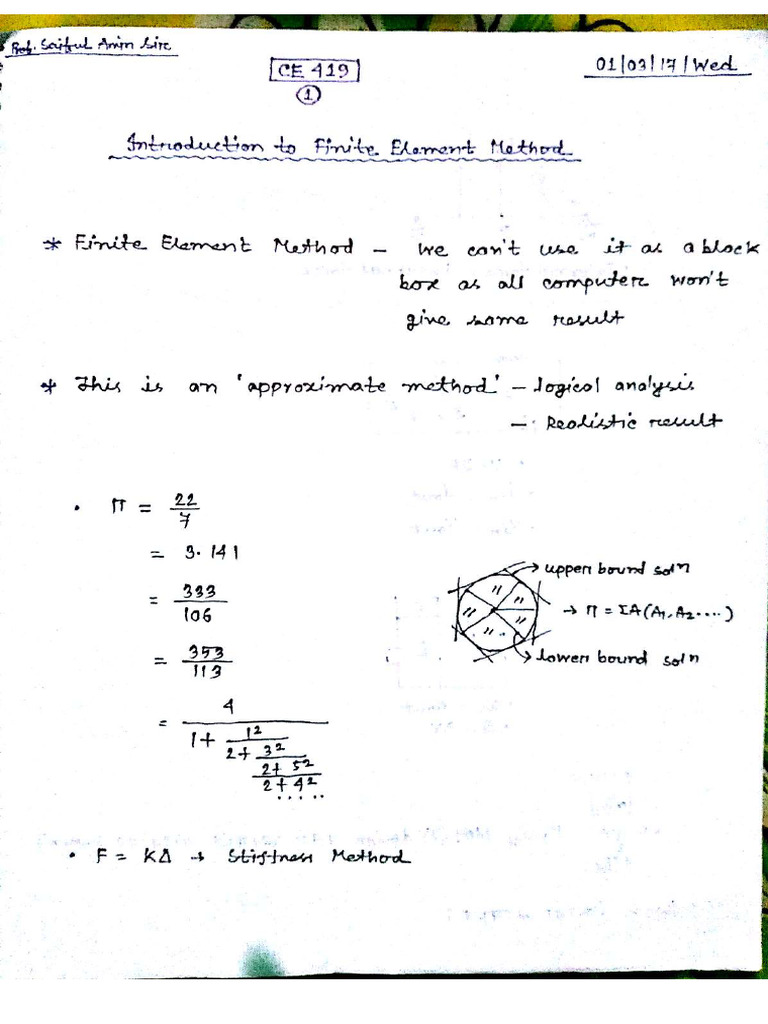 Prof. Saiful Amin Sir
CE 419
1
01/03/17/Wed
Introduction to Finite Element Method
* Finite Element Method – We can't use it as a block
box as all computer won't
give same result
* This is an 'approximate method' – logical analysis
– Realistic result
• π = 22/7
= 3.141
= 333/106
= 353/113
= 4/(1 + 1²/(2 + 3²/(2 + 5²/(2 + 4²
.....
→ upper bound solⁿ
→ π = ΣA(A₁, A₂ ....)
→ lower bound solⁿ
• F = KΔ → Stiffness Method